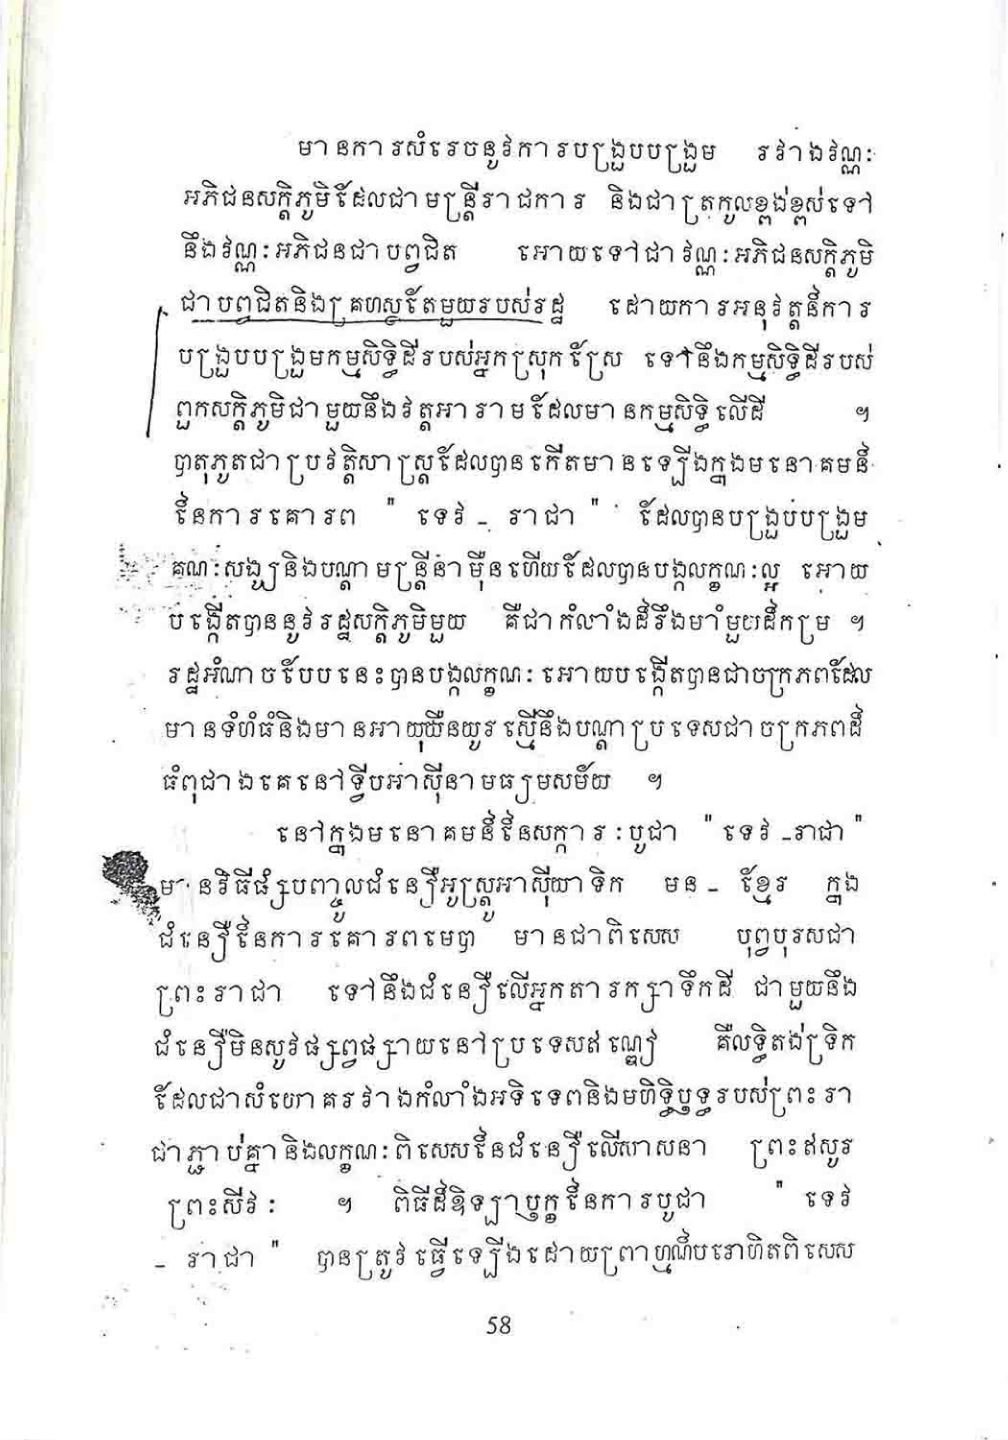 មានការសំរេចនូវការបង្រួបបង្រួម រវាងវណ្ណៈ
អភិជនសក្តិភូមិដែលជាមន្ត្រីរាជការ និងជាត្រកូលខ្ពង់ខ្ពស់ទៅ
នឹងវណ្ណៈអភិជនជាបព្វជិត អោយទៅជាវណ្ណៈអភិជនសក្តិភូមិ
ជាបព្វជិតនិងគ្រហស្ថតែមួយរបស់រដ្ឋ ដោយការអនុវត្តន៍ការ
បង្រួបបង្រួមកម្មសិទ្ធិដីរបស់អ្នកស្រុកស្រែ ទៅនឹងកម្មសិទ្ធិដីរបស់
ពួកសក្តិភូមិជាមួយនឹងវត្តអារាមដែលមានកម្មសិទ្ធិលើដី ។
បាតុភូតជាប្រវត្តិសាស្ត្រដែលបានកើតមានឡើងក្នុងមនោគមន៍
នៃការគោរព " ទេវ _ រាជា " ដែលបានបង្រួបបង្រួម
គណៈសង្ឃនិងបណ្តាមន្ត្រីនាម៉ឺនហើយដែលបានបង្កលក្ខណៈល្អ អោយ
បង្កើតបាននូវរដ្ឋសក្តិភូមិមួយ គឺជាកំលាំងដ៏រឹងមាំមួយដ៏កម្រ ។
រដ្ឋអំណាចបែបនេះបានបង្កលក្ខណៈអោយបង្កើតបានជាចក្រភពដែល
មានទំហំធំនិងមានអាយុយឺនយូរស្មើនឹងបណ្តាប្រទេសជាចក្រភពដ៏
ធំពុជាងគេនៅទ្វីបអាស៊ីនាមធ្យមសម័យ ។
នៅក្នុងមនោគមន៍នៃសក្ការៈបូជា " ទេវ _រាជា "
មានវិធីផ្សំបញ្ចូលជំនឿអូស្ត្រូអាស៊ីយាទិក មន _ ខ្មែរ ក្នុង
ជំនឿនៃការគោរពមេបា មានជាពិសេស បុព្វបុរសជា
ព្រះរាជា ទៅនឹងជំនឿលើអ្នកតារក្សាទឹកដី ជាមួយនឹង
ជំនឿមិនសូវផ្សព្វផ្សាយនៅប្រទេសឥណ្ឌៀ គឺលទ្ធិតង់ទ្រិក
ដែលជាសំយោគរវាងកំលាំងអទិទេពនិងមហិទ្ធិឫទ្ធរបស់ព្រះរា
ជាភ្ជាប់គ្នានិងលក្ខណៈពិសេសនៃជំនឿលើសាសនា ព្រះឥសូរ
ព្រះសីវៈ ។ ពិធីដ៏ឱឡារឹកនៃការបូជា " ទេវ
_ រាជា " បានត្រូវធ្វើឡើងដោយព្រាហ្មណ៍បរោហិតពិសេស
58